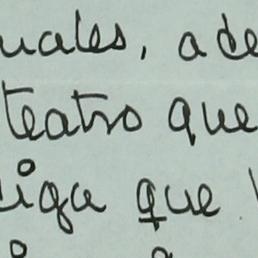 uales, ade
teatro que
iga que